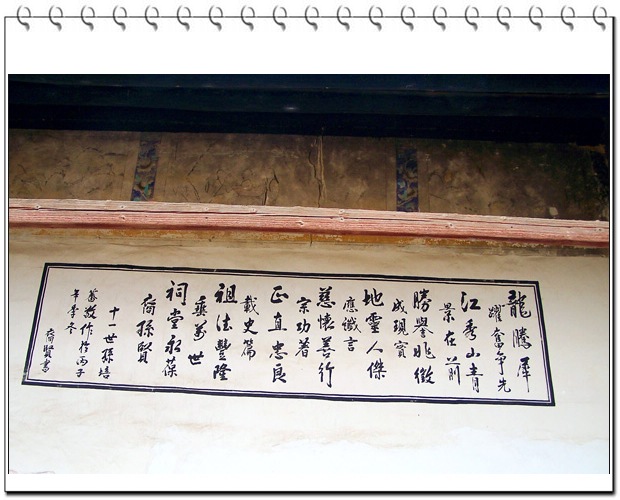 龍騰犀
躍奮爭先
江秀山青
景在前
勝譽兆徵
成現實
地靈人傑
應讖言
慈懷善行
宗功著
正直忠良
載史篇
祖法豐隆
垂萬世
祠堂永葆
裔孫賢
十一世孫培
敬作於丙子
年季冬
裔賢書